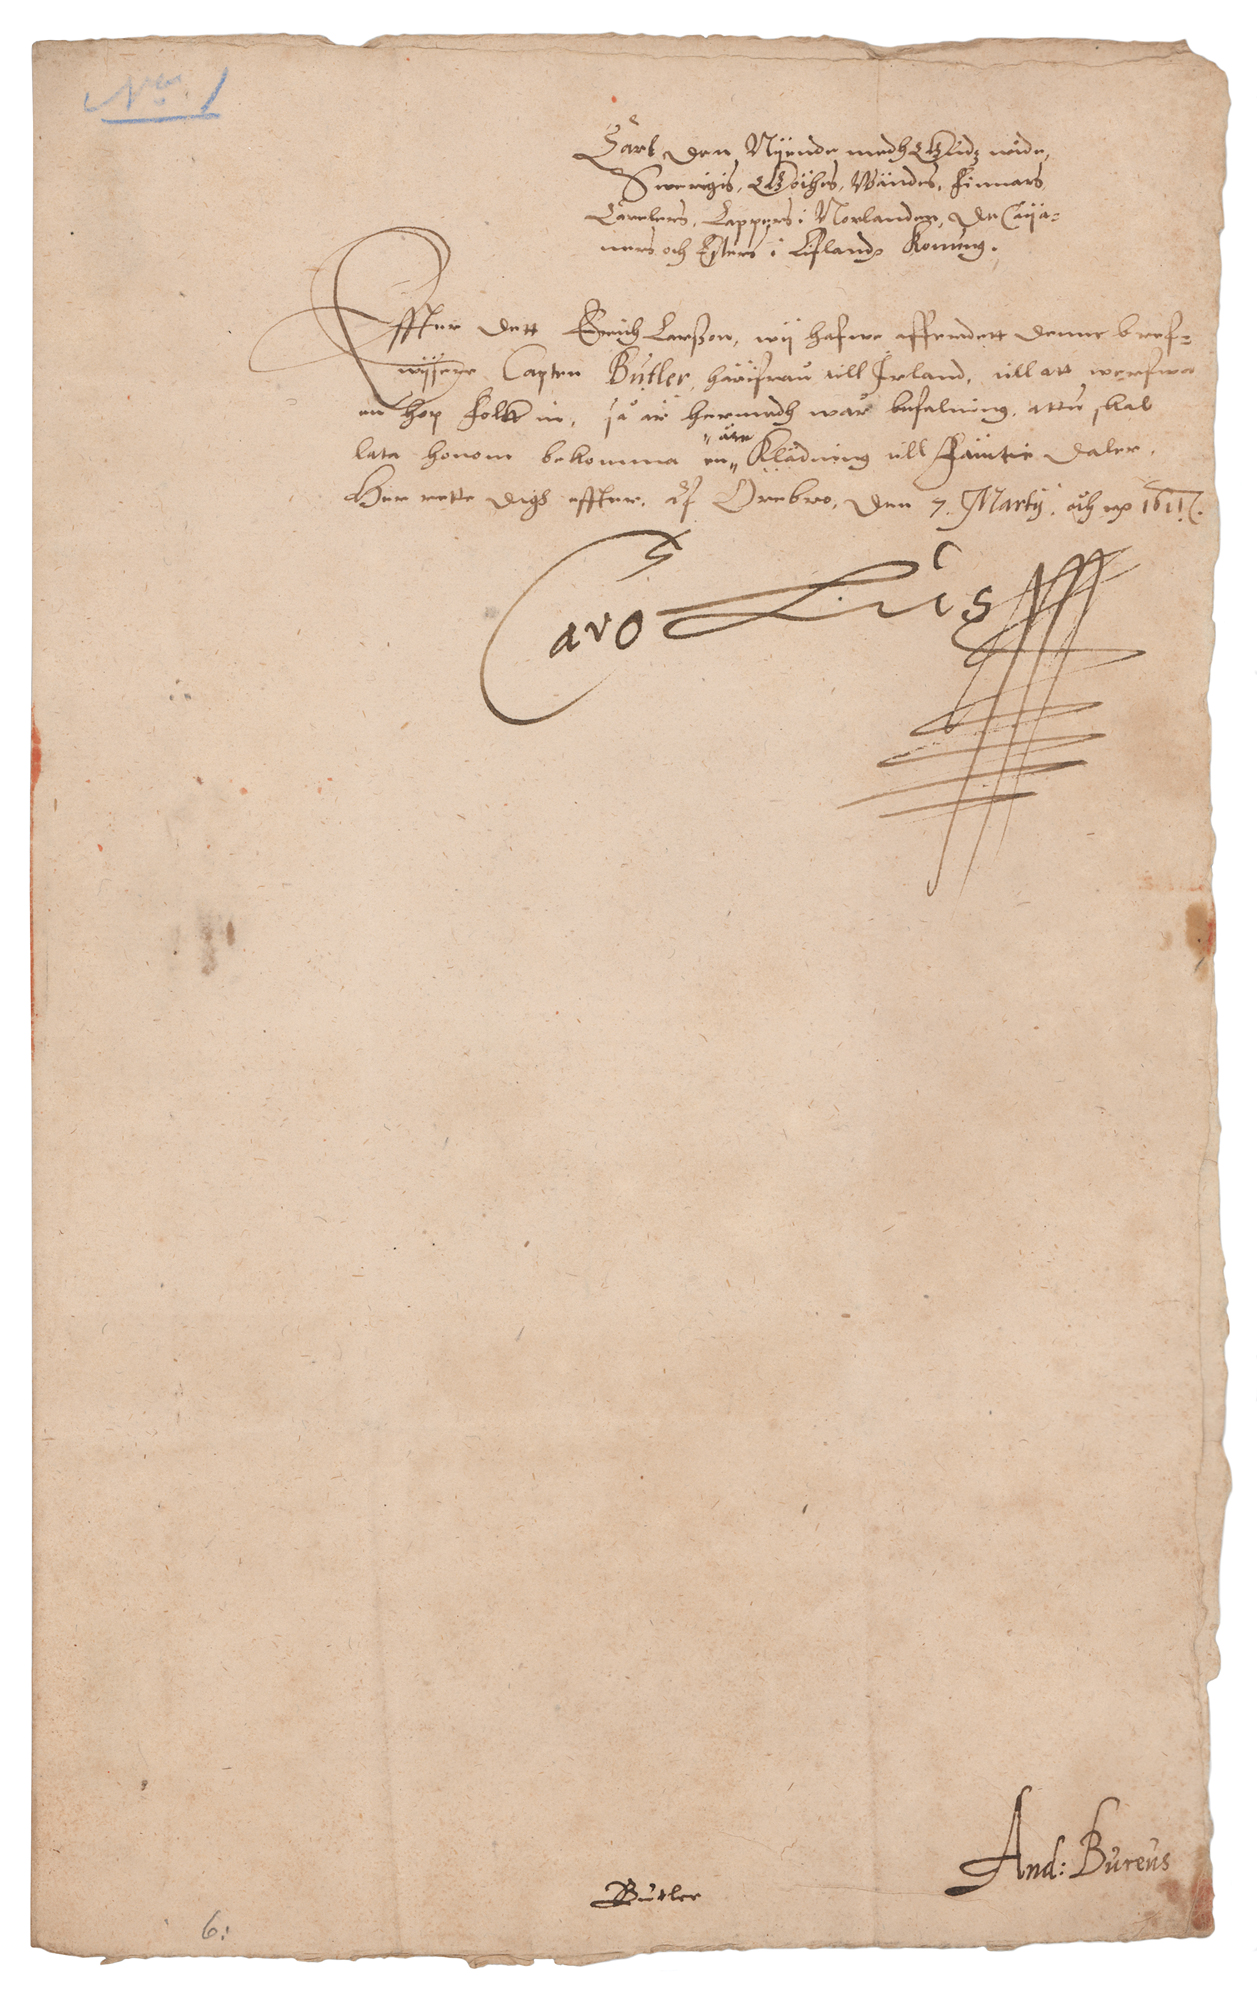 No. 1
Carl den Nijende medh Gudz nåde,
Swerigis, Göthes, Wändes, Finnars,
Carelers, Lappers i Norlanden, de Caija-
ners och Esters i Lifland Konung.
Effter dett Erich Larßon, wij hafwe affsendett denne bref-
wijsere Capten Butler, häriifrån till Irland, till att werfwa
en hop folck in, så är hermedh wår befalning, attu skal
åre
lata honom bekomma en Klädning till Fämtie daler.
Her rette digh effter. Af Örebro, den 7. Martij, åhr 1611.
Carolus
And: Bureus
Butler
6: